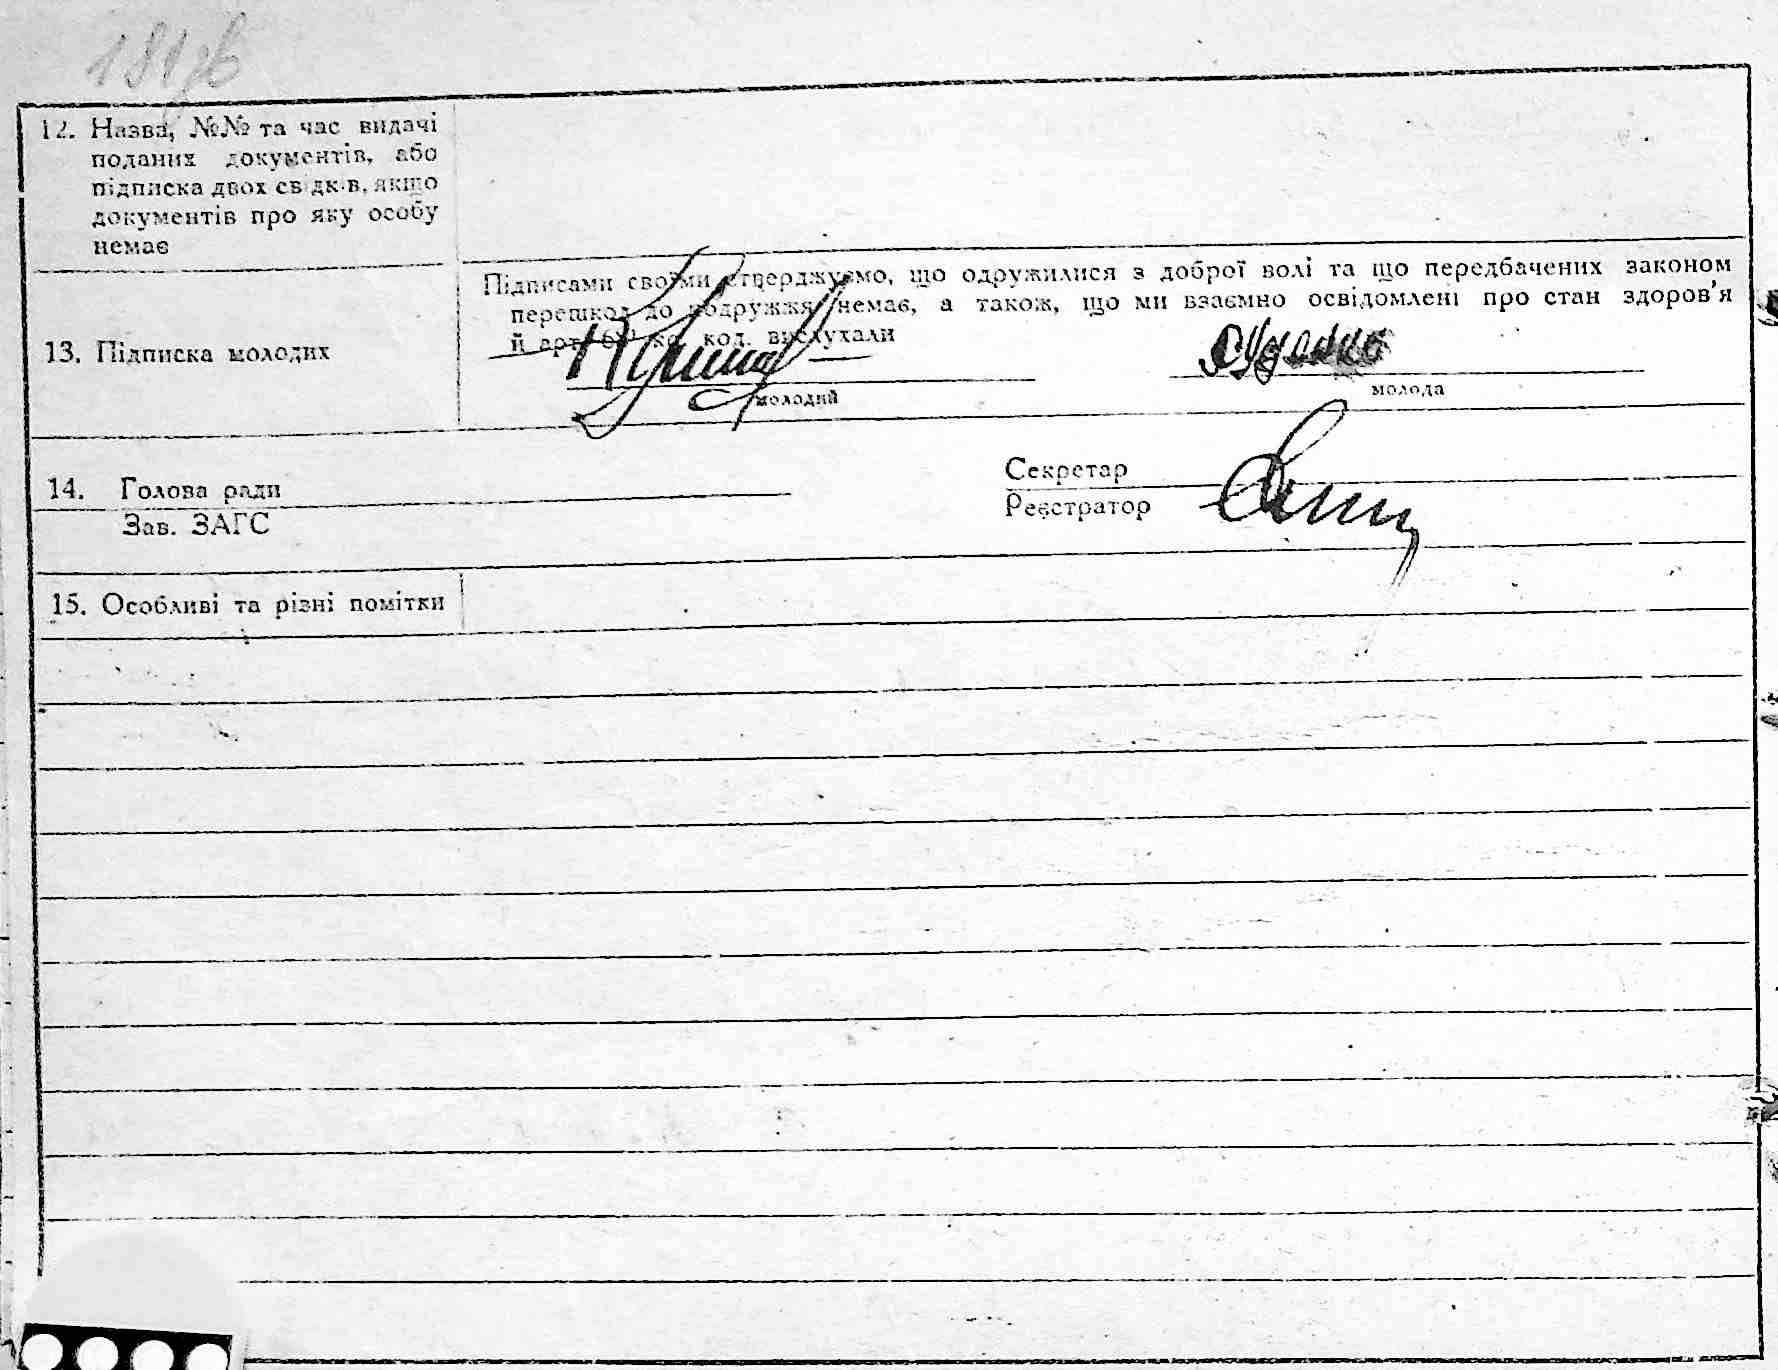 12. Назва, №№ та час видачі
поданих документів, або
підписка двох св дк·в, якщо
документів про яку особу
немає
Підписами своїми стверджуємо, що одружилися з доброї волі та що передбачених законом
перешкод до подружжя немає, а також, що ми взаємно освідомлені про стан здоров'я
й арт. код. вислухали
13. Підписка молодих
молодий
молода
14. Голова ради
Секретар
Зав. ЗАГС
Реєстратор
15. Особливі та різні помітки